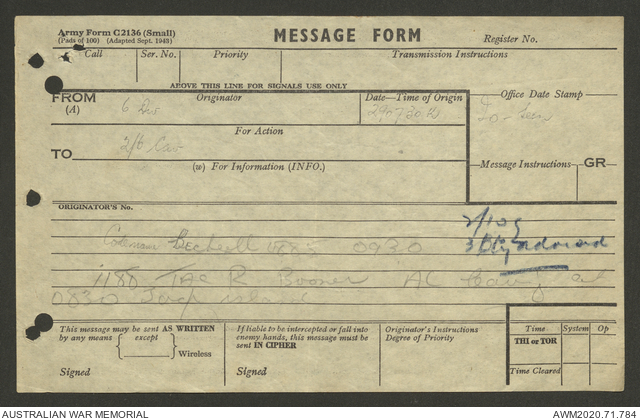 Army Form C2136 (Small)
(Pads of 100) (Adapted Sept. 1943)
MESSAGE FORM
Register No.
Call
Ser. No.
Priority
Transmission Instructions
ABOVE THIS LINE FOR SIGNALS USE ONLY
FROM
(A)
Originator
6 Div
Date—Time of Origin
Office Date Stamp
For Action
TO
2/6 Cav
(w) For Information (INFO.)
Message Instructions
GR
ORIGINATOR'S No.
0930
1180 Tac R Boomer
0830 Jap
This message may be sent AS WRITTEN
by any means
except
Wireless
Signed
If liable to be intercepted or fall into
enemy hands, this message must be
sent IN CIPHER
Signed
Originator's Instructions
Degree of Priority
Time
System
Op
THI or TOR
Time Cleared
AUSTRALIAN WAR MEMORIAL
AWM2020.71.784